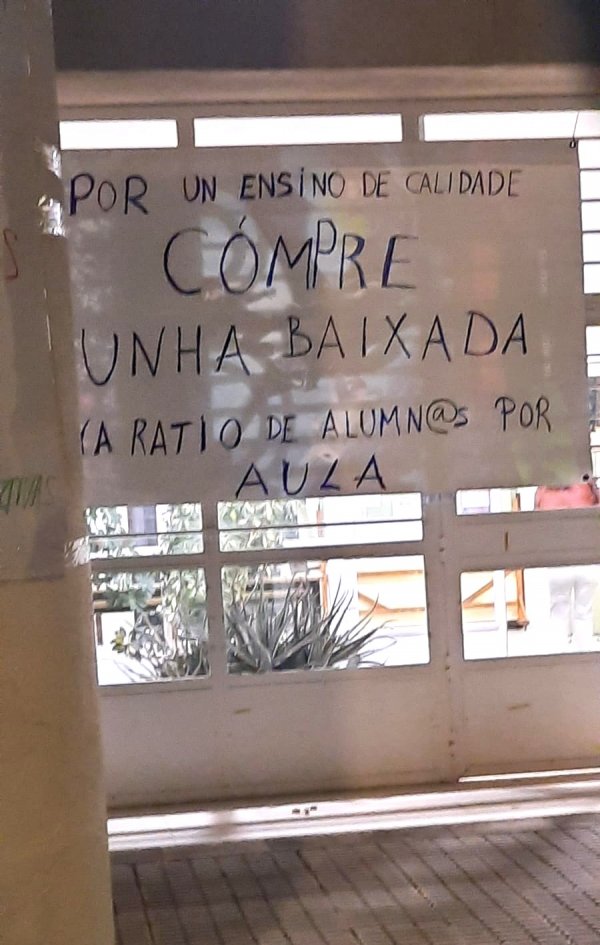 POR UN ENSINO DE CALIDADE
CÓMPRE
UNHA BAIXADA
A RATIO DE ALUMN@S POR
AULA